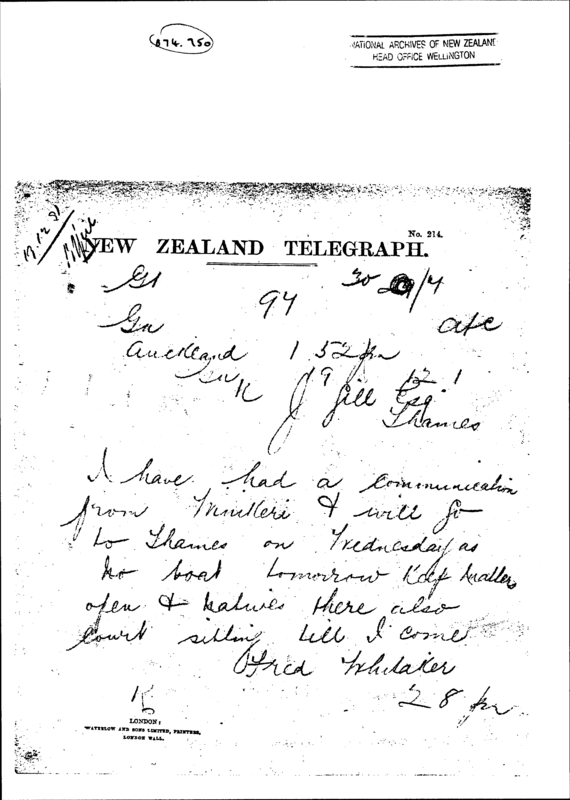 A74. 750
NATIONAL ARCHIVES OF NEW ZEALAND
HEAD OFFICE WELLINGTON
No. 214.
NEW ZEALAND TELEGRAPH.
Gt
30 /4
94
Gn
Auckland 1 52 pm
19 12 1
J Gill Esq.
Thames
I have had a communication
from & will go
to Thames on Wednesday as
no boat tomorrow Keep matters
open & natives there also
court sitting till I come
Fred Whitaker
2 8 pm
LONDON:
WATERLOW AND SONS LIMITED, PRINTERS,
LONDON WALL.